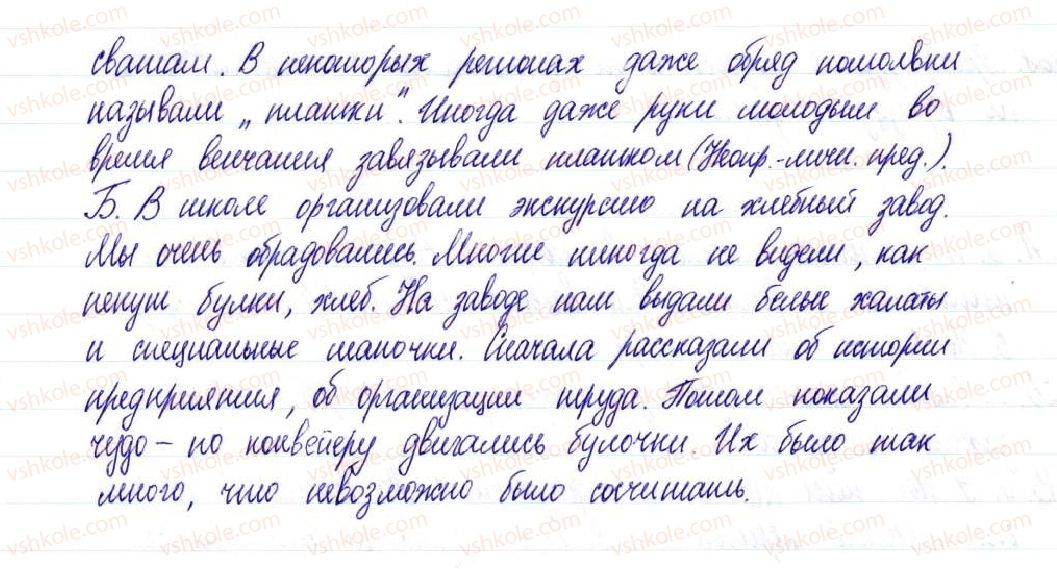 сватам. В некоторых регионах даже обряд помолвки
называли „платки". Иногда даже руки молодым во
время венчания завязывали платком (Неопр.-личн. пред.).
Б. В школе организовали экскурсию на хлебный завод.
Мы очень обрадовались. Многие никогда не видели, как
пекут булки, хлеб. На заводе нам выдали белые халаты
и специальные шапочки. Сначала рассказали об истории
предприятия, об организации труда. Потом показали
чудо – по конвейеру двигались булочки. Их было так
много, что невозможно было сосчитать.